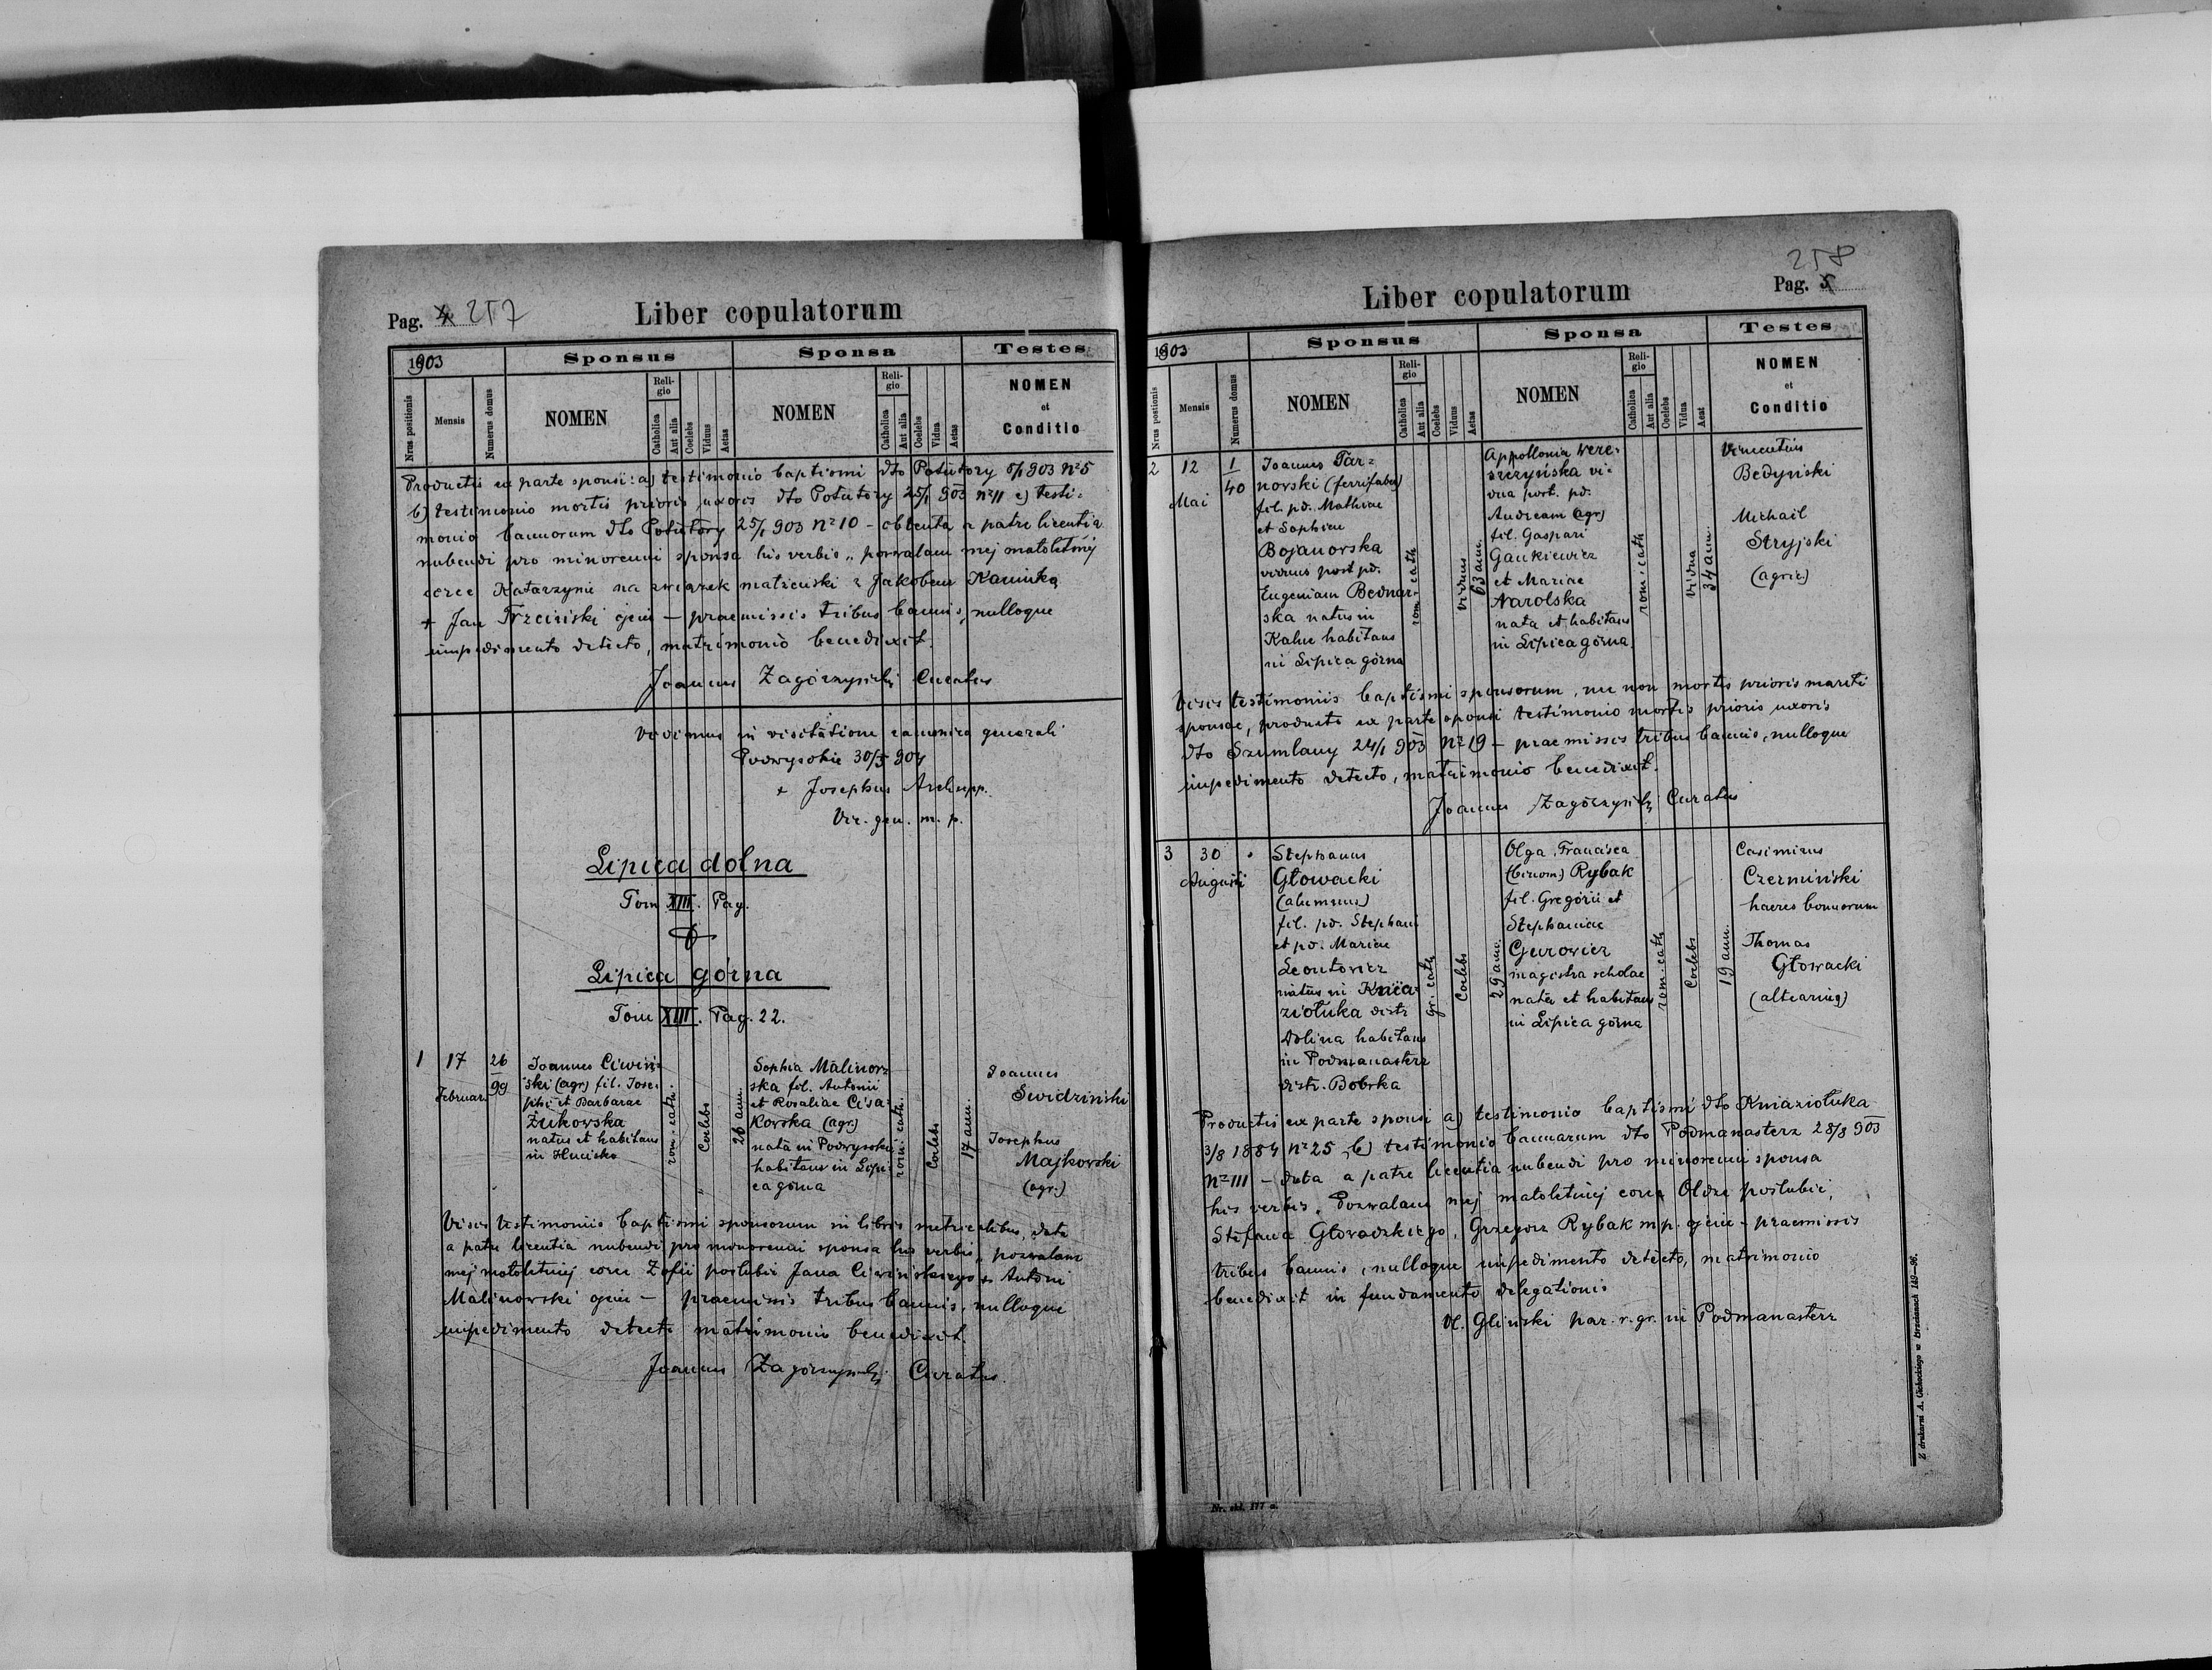 Pag. 4 257
Liber copulatorum
1903
Sponsus
Sponsa
Testes
Nrus positionis
Mensis
Numerus domus
NOMEN
Religio
Catholica
Aut alia
Coelebs
Viduus
Aetas
NOMEN
Religio
Catholica
Aut alia
Coelebs
Vidua
Aetas
NOMEN
et
Conditio
Productis ex parte sponsi: a) testimonio baptismi dto Potutory 903 Nº 5
b) testimonio mortis prioris uxoris dto Potutory 25/1 903 nº 11 c) testi=
monio bannorum dto Potutory 25/1 903 Nº 10 – obtenta a patre licentia
nubendi pro minorenni sponsa his verbis „pozwalam mej małoletniej
córce Katarzynie na związek małżeński z Jakóbem Kaminką
+ Jan Trzciński ojciec – praemissis tribus bannis, nulloque
impedimento detecto, matrimonio benedixit.
Joannes Zagórzyski Curatus
Vidimus in visitatione canonica generali
Podwysokie 30/5 904
+ Josephus Archiepp.
Vic. gen. m. p.
Lipica dolna
Tom XIII. Pag.
Lipica górna
Tom XIII. Pag. 22.
1
17
Februar.
26
99
Joannes Ciwiń=
ski (agr.) fil. Jose=
phi et Barbarae
Żukowska
natus et habitans
in Hucisko
rom. cath.
Coelebs
26 ann.
Sophia Malinow=
ska fil. Antonii
et Rosaliae Cisa=
kowska (agr.)
nata in Podwysokie
habitans in Lipi=
ca górna
rom. cath.
Coelebs
17 ann.
Joannes
Swidziński
Josephus
Majkowski
(agr.)
Visis testimoniis baptismi sponsorum in libris metricalibus, data
a patre licentia nubendi pro minorenni sponsa his verbis „pozwalam
mej małoletniej córce Zofii poślubić Jana Ciwińskiego + Antoni
Malinowski ojciec – praemissis tribus bannis, nulloque
impedimento detecto matrimonio benedixit.
Joannes Zagórzyski Curatus.
258
Pag. 5
Liber copulatorum
1903
Sponsus
Sponsa
Testes
Nrus postionis
Mensis
Numerus domus
NOMEN
Religio
Catholica
Aut alia
Coelebs
Viduus
Aetas
NOMEN
Religio
Catholica
Aut alia
Coelebs
Vidua
Aest
NOMEN
et
Conditio
2
12
Mai
1
40
Joannes Tar=
nowski (ferrifaber)
fil. pd. Mathiae
et Sophiae
Bojanowska
viduus post pd.
Eugeniam Bednar=
ska natus in
Kalne habitans
in Lipica górna
rom. cath
viduus
63 ann.
Appollonia Were=
szczyńska vi=
dua post. pd.
Andream (agr)
fil. Gaspari
Gankiewicz
et Mariae
Narolska
nata et habitans
in Lipica górna
rom. cath
vidua
34 ann.
Vincentius
Bedyński
Michail
Stryjski
(agric)
Visis testimoniis baptismi sponsorum, nec non mortis prioris mariti
sponsae, producto ex parte sponsi testimonio mortis prioris uxoris
dto Szumlany 24/1 903 Nº 19 – praemissis tribus bannis, nulloque
impedimento detecto, matrimonio benedixit.
Joannes Zagórzyski Curatus
3
30
Augusti
Stephanus
Głowacki
(alumnus)
fil. pd. Stephani
et pd. Mariae
Leontowicz
natus in Knia=
ziołuka distr
Dolina habitans
in Podmanasterz
distr. Bobrka
gr. cath
Coelebs
29 ann.
Olga Francisca
(binom) Rybak
fil. Gregorii et
Stephaniae
Gurowicz
magistra scholae
nata et habitans
in Lipica górna
rom. cath
Coelebs
19 ann.
Casimirus
Czermiński
haeres bonorum
Thomas
Głowacki
(altearius)
Productis ex parte sponsi a) testimonio baptismi dto Kniaziołuka
3/8 1884 Nº 25 b) testimonio bannorum dto Podmanasterz 28/8 903
Nº 111 – data a patre licentia nubendi pro minorenni sponsa
his verbis, Pozwalam mej małoletniej córce Oldze poślubić,
Stefana Głowadzkiego, Grzegorz Rybak mp. ojciec – praemissis
tribus bannis, nulloque impedimento detecto, matrimonio
benedixit in fundamento delegationis
Vl. Gliński par. r. gr. in Podmanasterz
Z drukarni A. Cichockiego w Brzeżanach 149—96.
Nr. skł. 177 a.